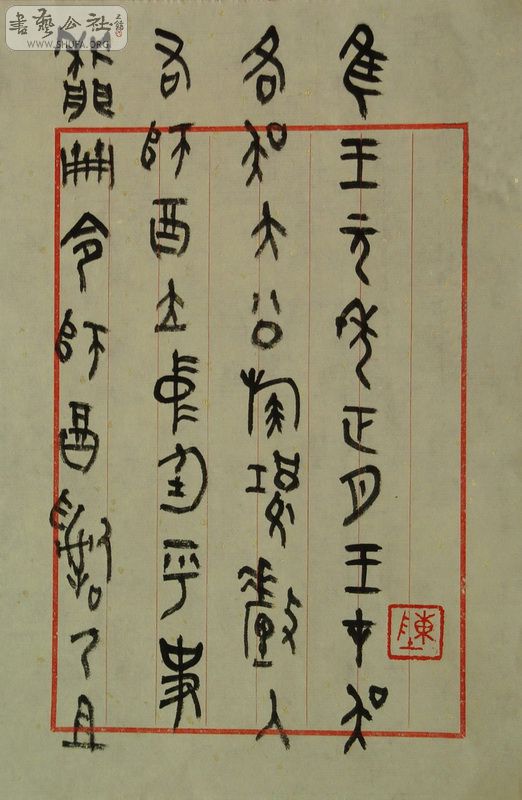 書藝公社
WWW.SHUFA.ORG
隹王元年正月王才吳
各吳大公族釐入
右師酉立中廷乎史
冊令師酉嗣乃且
陳